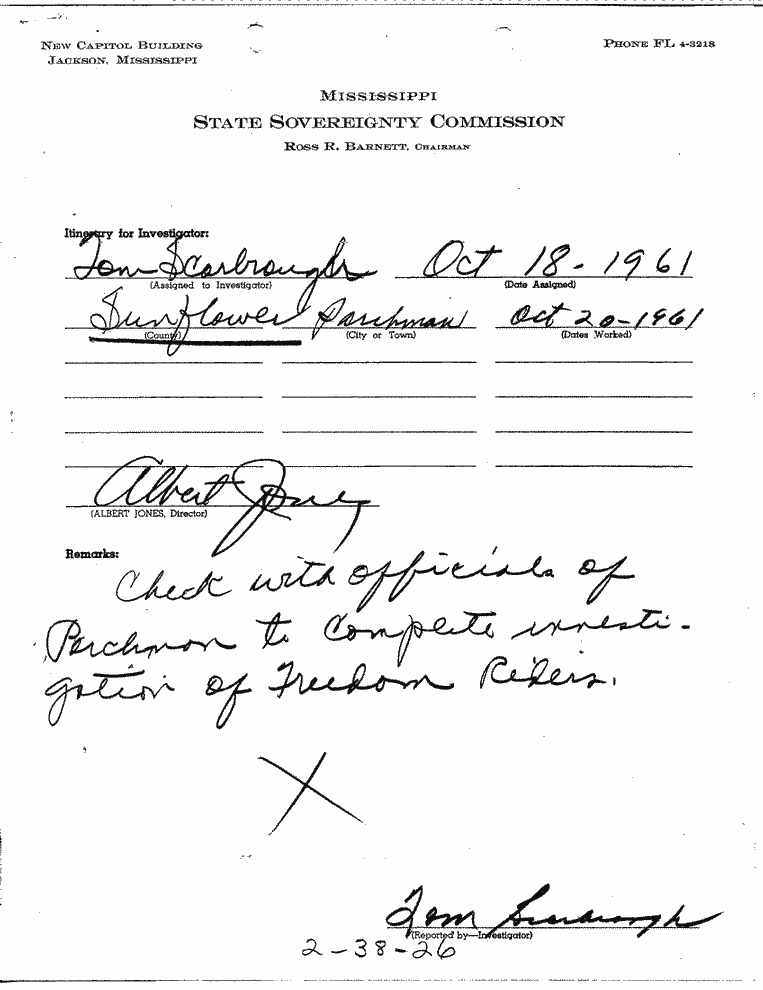 NEW CAPITOL BUILDING
JACKSON, MISSISSIPPI
PHONE FL 4-3218
MISSISSIPPI
STATE SOVEREIGNTY COMMISSION
ROSS R. BARNETT, CHAIRMAN
Itinerary for Investigator:
Tom Scarbrough Oct 18-1961
(Assigned to Investigator) (Date Assigned)
Sunflower Parchman Oct 20-1961
(County) (City or Town) (Dates Worked)
Albert Jones
(ALBERT JONES, Director)
Remarks:
Check with officials of
Parchman to complete investi-
gation of Freedom Riders.
X
Tom Scarbrough
(Reported by—Investigator)
2-38-26